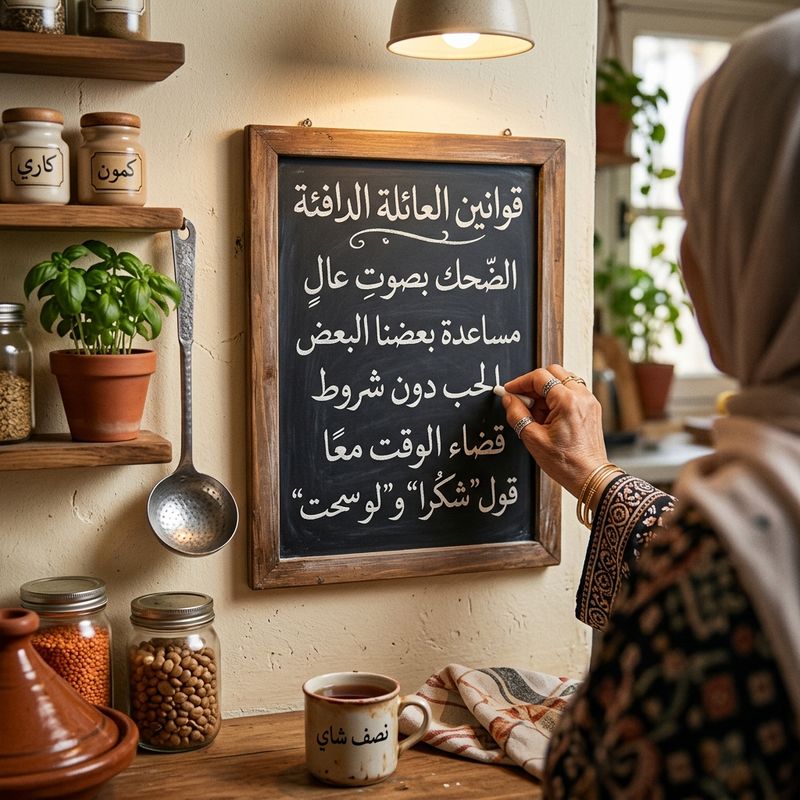 كاري
كمون
قوانين العائلة الدافئة
الضّحك بصوتِ عالٍ
مساعدة بعضنا البعض
الحب دون شروط
قضاء الوقت معًا
قول "شكُرا" و"لو سحت"
نصف شاي